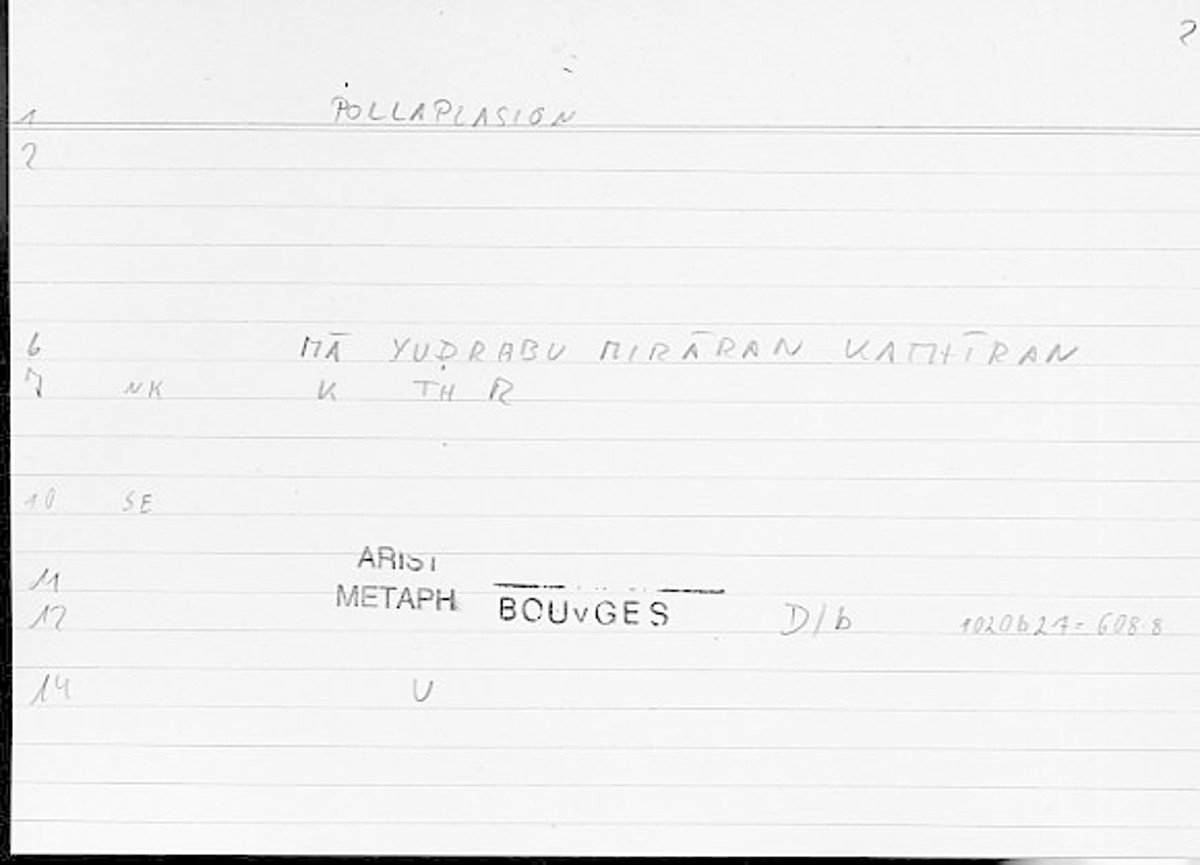 2
1 POLLAPLASION
2
6 MĀ YUḌRABU MIRĀRAN KATHĪRAN
7 NK K TH R
10 SE
ARIST
11
METAPH BOUvGES
12 D/b 1020b27= 608.8
14 V